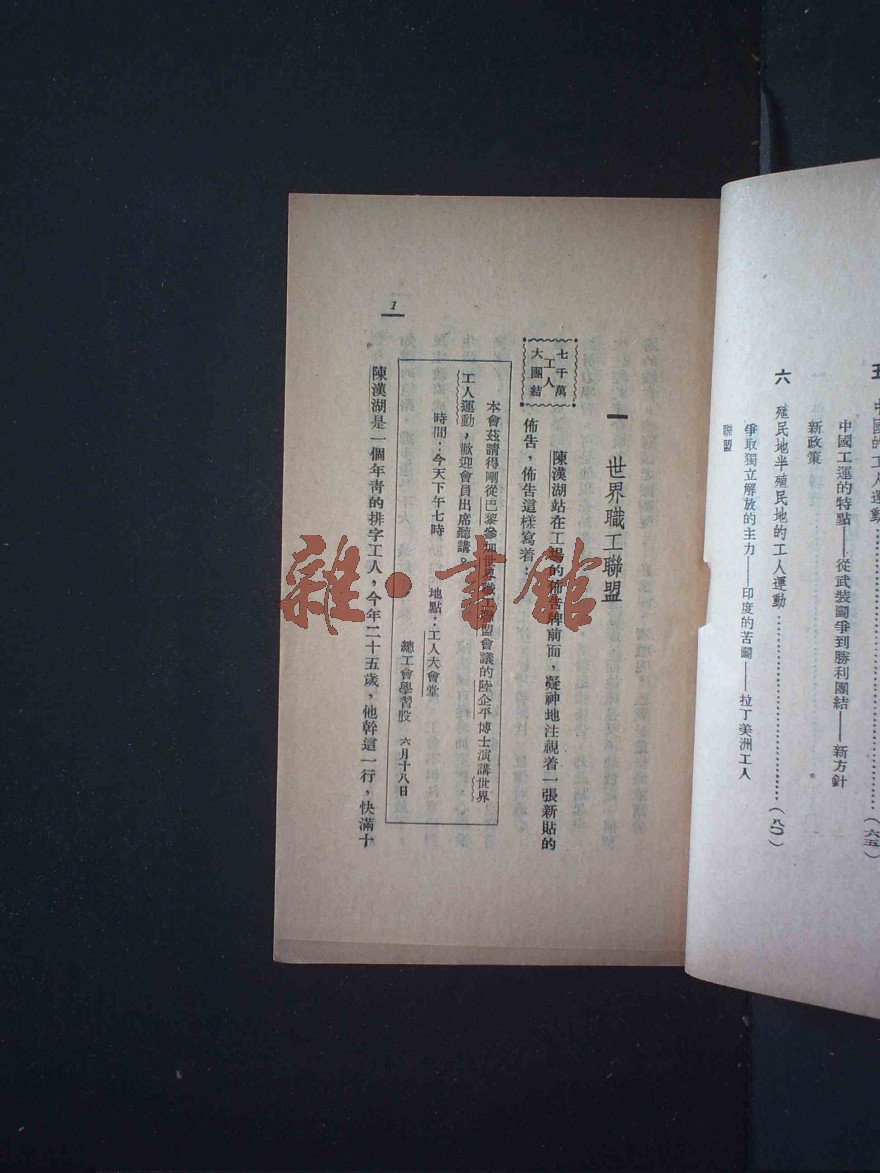 五 中國的工人運動…………(六五)
中國工運的特點——從武裝鬪爭到勝利團結——新方針
新政策
六 殖民地半殖民地的工人運動…………(八〇)
爭取獨立解放的主力——印度的苦鬪——拉丁美洲工人
聯盟
一 世界職工聯盟
七千萬
工人
大團結
陳漢湖站在工場的佈告牌前面，凝神地注視着一張新貼的
佈告，佈告這樣寫着：
本會茲請得剛從巴黎參加世界職工聯盟會議的陸企平博士演講世界
工人運動，歡迎會員出席聽講
時間：今天下午七時 地點：工人大會堂
總工會學習股 六月十八日
陳漢湖是一個年靑的排字工人，今年二十五歲，他幹這一行，快滿十
1
雜·書館